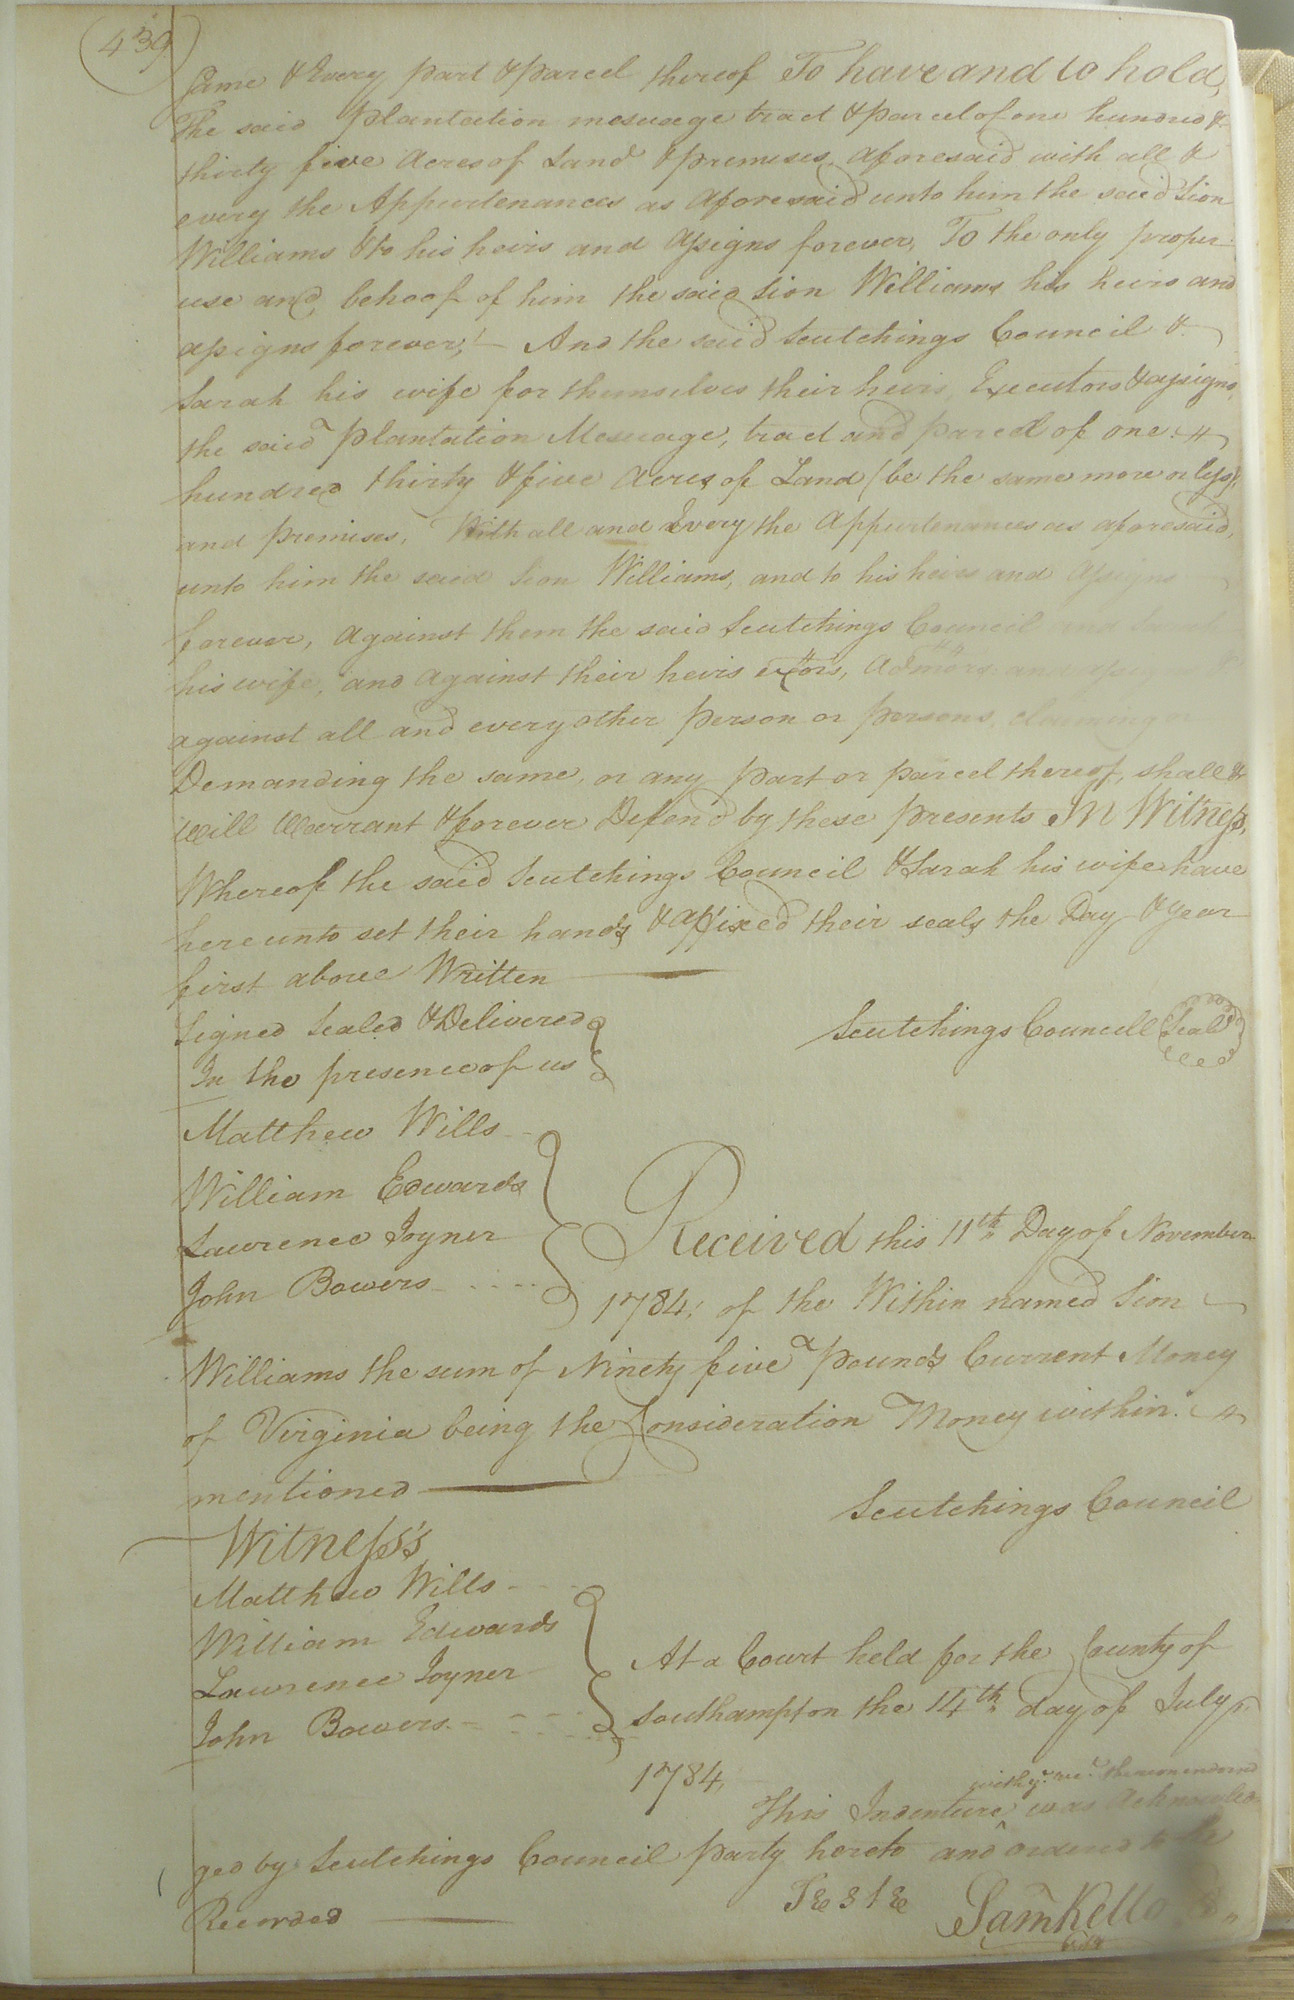 439
Same & Every part & parcel thereof To have and to hold,
The said Plantation mesuage tract & parcel of one hundred &
thirty five Acres of Land & premises aforesaid with all &
every the Appurtenances as aforesaid unto him the said Sion
Williams & to his heirs and assigns forever, To the only proper
use and behoof of him the said Sion Williams his heirs and
assigns forever; And the said Scutchings Council &
Sarah his wife for themselves their heirs, Executors & assigns,
the said Plantation Mesuage, tract and parcel of one
hundred thirty & five Acres of Land (be the same more or less)
and premises, With all and Every the Appurtenances as aforesaid,
unto him the said Sion Williams, and to his heirs and Assigns
forever, against them the said Scutchings Council and Sarah
his wife, and against their heirs extors, Admors. and
against all and every other person or persons claiming or
Demanding the same, or any part or parcel thereof, shall &
will Warrant & forever Defend by these presents In Witness,
Whereof the said Scutchings Council & Sarah his wife have
hereunto set their hands & affixed their seals the Day & year
first above Written
Signed Sealed & Delivered
In the presence of us
Scutchings Councill Seal
Matthew Wills
William Edwards
Lawrence Joyner
John Bowers
Received this 11th Day of November
1784; of the Within named Sion
Williams the sum of Ninety five pounds Current Money
of Virginia being the Consideration Money within
mentioned
Scutchings Council
Witness's
Matthew Wills
William Edwards
Lawrence Joyner
John Bowers
At a Court held for the County of
Southampton the 14th day of July
1784,
with ye. rec. thereon endorsed
This Indenture was Acknowled
ged by Scutchings Council party hereto and ordered to be
Recorded
Teste
Saml Kello